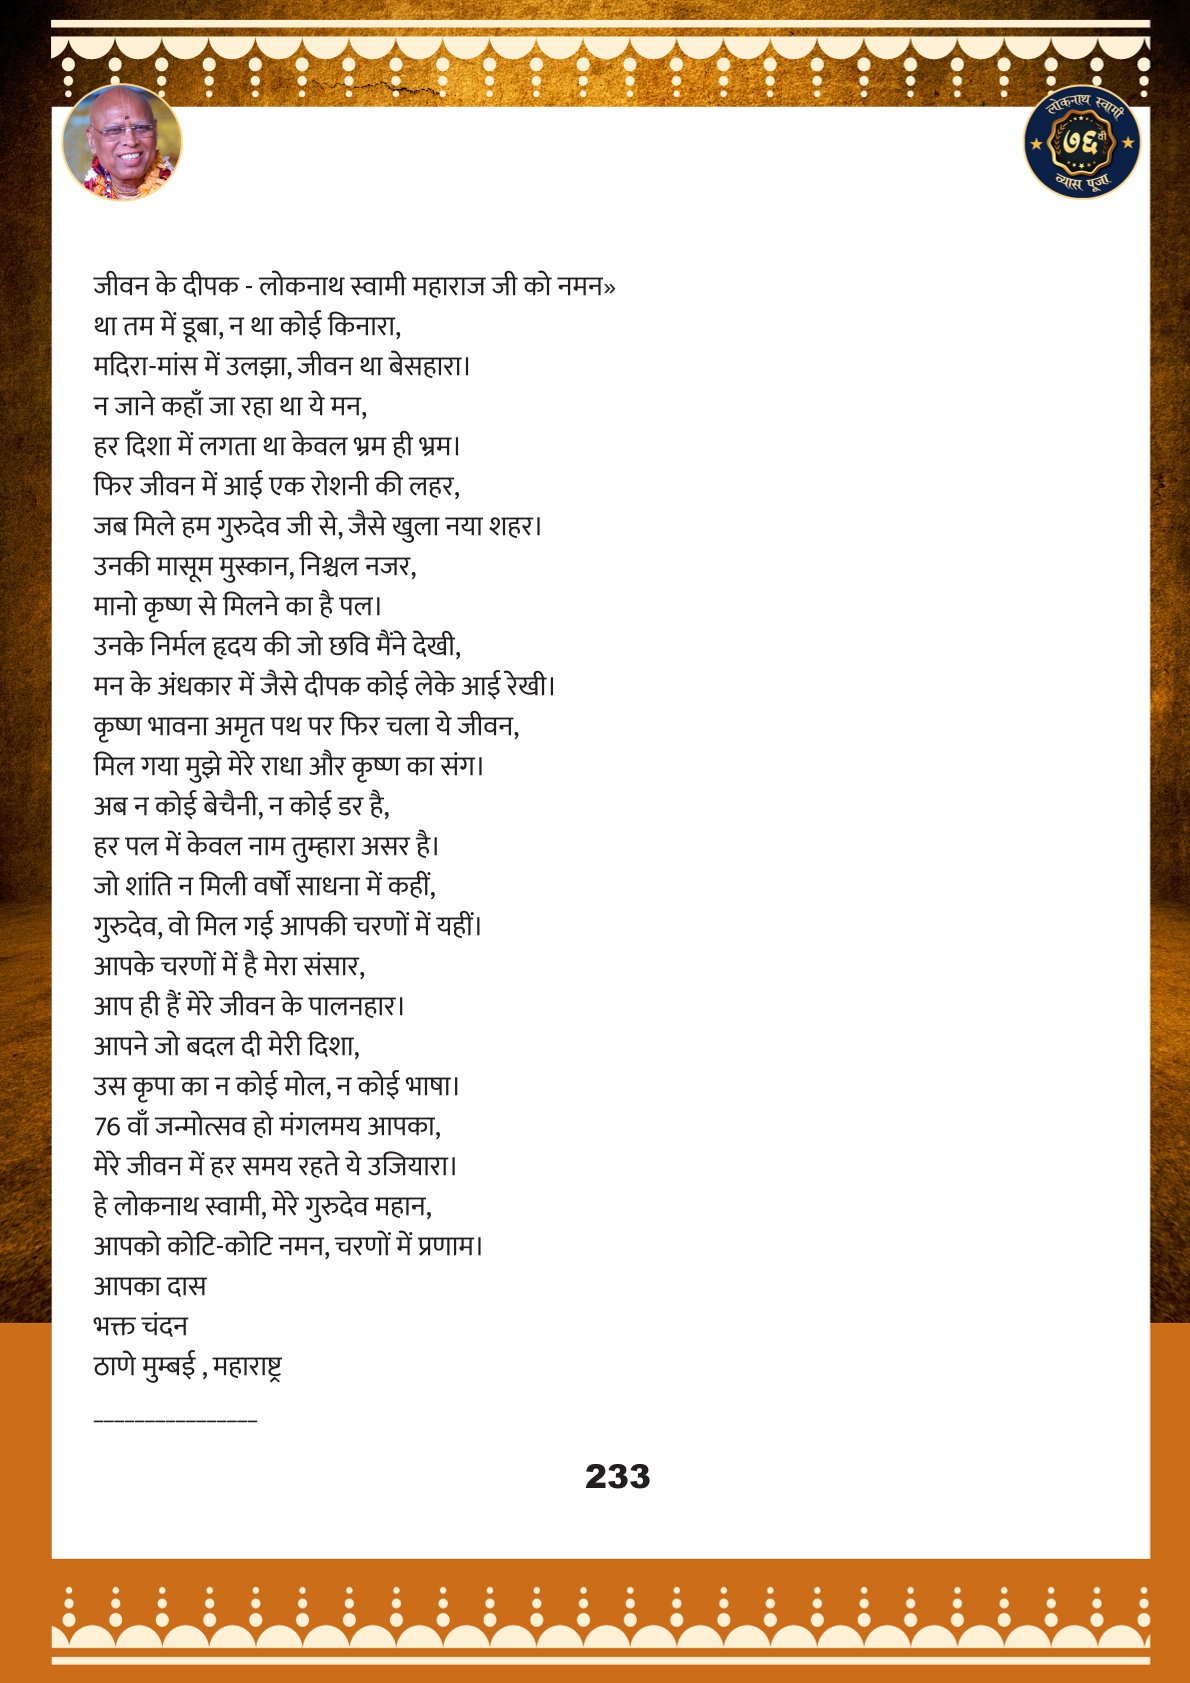 लोकनाथ स्वामी
७६ वी
व्यास पूजा
जीवन के दीपक - लोकनाथ स्वामी महाराज जी को नमन»
था तम में डूबा, न था कोई किनारा,
मदिरा-मांस में उलझा, जीवन था बेसहारा।
न जाने कहाँ जा रहा था ये मन,
हर दिशा में लगता था केवल भ्रम ही भ्रम।
फिर जीवन में आई एक रोशनी की लहर,
जब मिले हम गुरुदेव जी से, जैसे खुला नया शहर।
उनकी मासूम मुस्कान, निश्चल नजर,
मानो कृष्ण से मिलने का है पल।
उनके निर्मल हृदय की जो छवि मैंने देखी,
मन के अंधकार में जैसे दीपक कोई लेके आई रेखी।
कृष्ण भावना अमृत पथ पर फिर चला ये जीवन,
मिल गया मुझे मेरे राधा और कृष्ण का संग।
अब न कोई बेचैनी, न कोई डर है,
हर पल में केवल नाम तुम्हारा असर है।
जो शांति न मिली वर्षों साधना में कहीं,
गुरुदेव, वो मिल गई आपकी चरणों में यहीं।
आपके चरणों में है मेरा संसार,
आप ही हैं मेरे जीवन के पालनहार।
आपने जो बदल दी मेरी दिशा,
उस कृपा का न कोई मोल, न कोई भाषा।
76 वाँ जन्मोत्सव हो मंगलमय आपका,
मेरे जीवन में हर समय रहते ये उजियारा।
हे लोकनाथ स्वामी, मेरे गुरुदेव महान,
आपको कोटि-कोटि नमन, चरणों में प्रणाम।
आपका दास
भक्त चंदन
ठाणे मुम्बई , महाराष्ट्र
________________
233